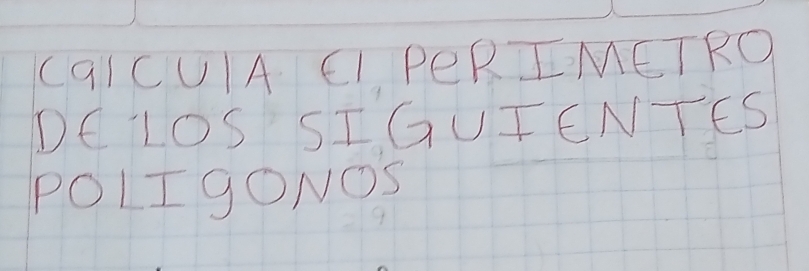 CalCUlA El PeRIMETRO
DE LOS SIGUIENTES
POLIgONOS